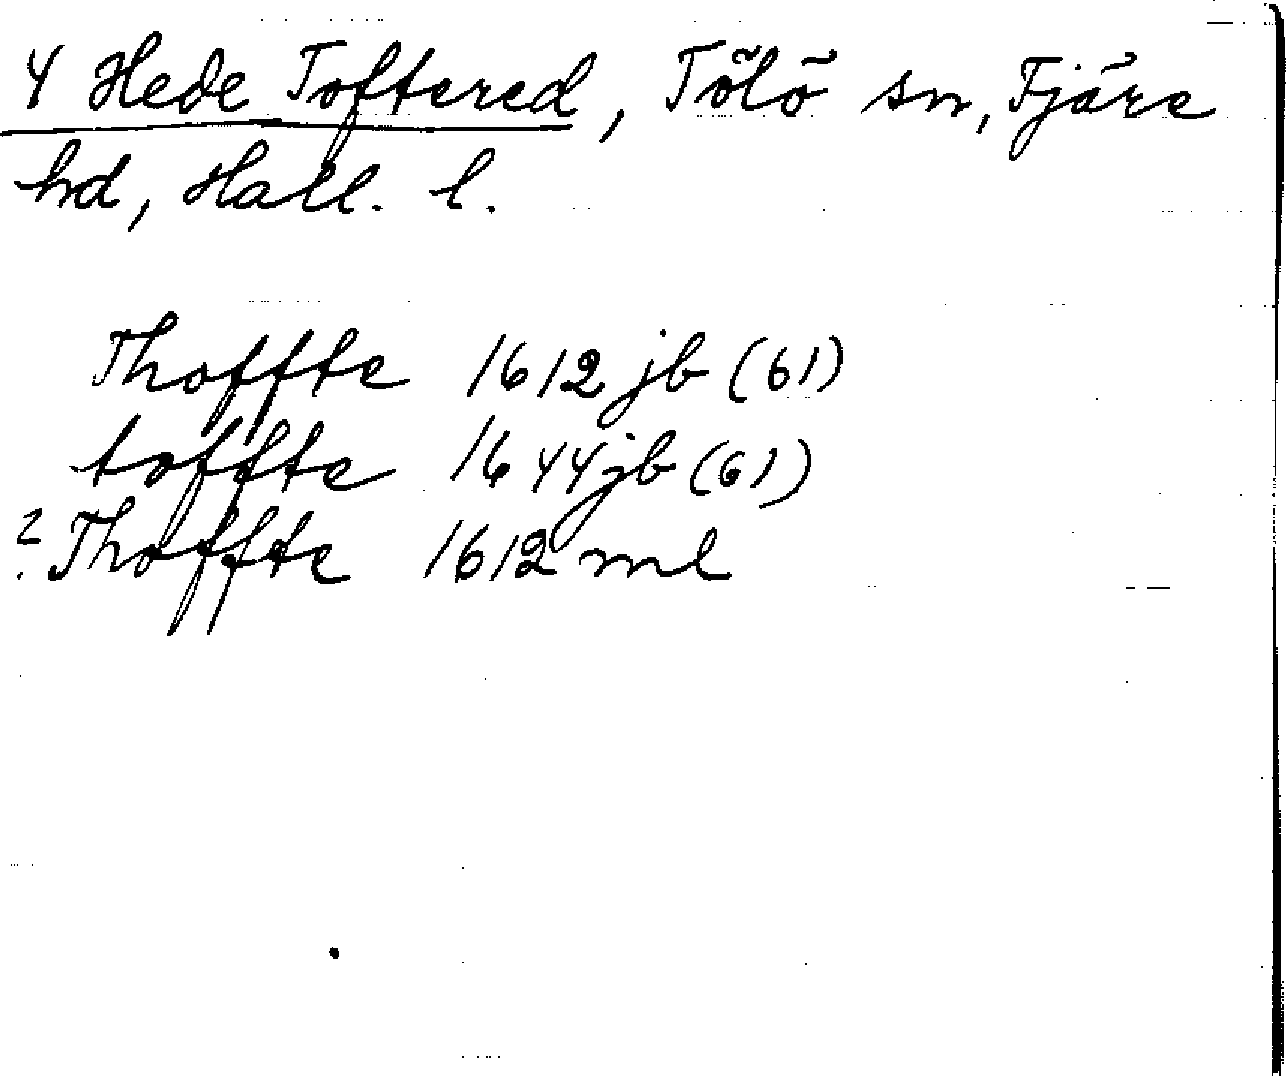 4 Hede Toftered, Tölö sn, Fjäre
hd, Hall. l.
Thoffte 1612 jb (61)
toffte 1644 jb (61)
? Thoffte 1612 ml